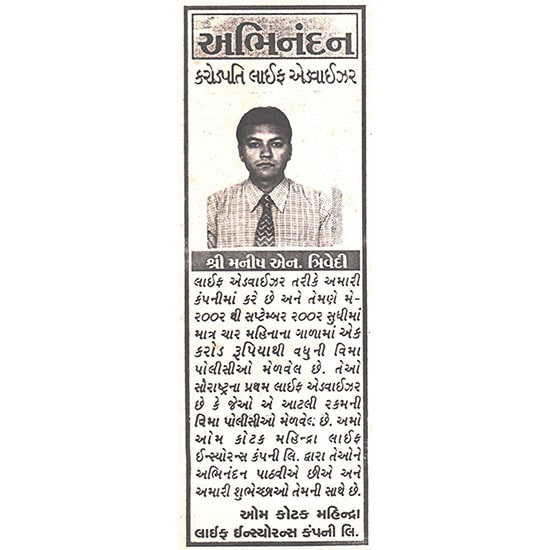 અભિનંદન
કરોડપતિ લાઈફ એડવાઈઝર
શ્રી મનીષ એન. ત્રિવેદી
લાઈફ એડવાઈઝર તરીકે અમારી
કંપનીમાં કરે છે અને તેમણે મે-
૨૦૦૨ થી સપ્ટેમ્બર ૨૦૦૨ સુધીમાં
માત્ર ચાર મહિનાના ગાળામાં એક
કરોડ રૂપિયાથી વધુની વિમા
પોલીસીઓ મેળવેલ છે. તેઓ
સૌરાષ્ટ્રના પ્રથમ લાઈફ એડવાઈઝર
છે કે જેઓ એ આટલી રકમની
વિમા પોલીસીઓ મેળવેલ છે. અમો
ઓમ કોટક મહિન્દ્રા લાઈફ
ઈન્સ્યોરન્સ કંપની લિ. દ્વારા તેઓને
અભિનંદન પાઠવીએ છીએ અને
અમારી શુભેચ્છાઓ તેમની સાથે છે.
ઓમ કોટક મહિન્દ્રા
લાઈફ ઈન્સ્યોરન્સ કંપની લિ.